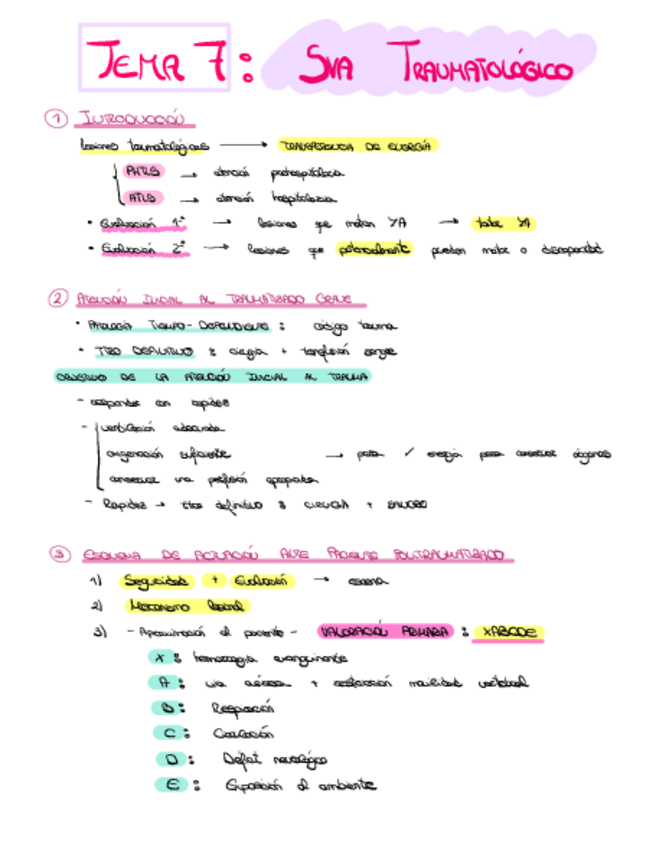 TEMA 7: SVA TRAUMATOLÓGICO
① INTRODUCCIÓN
lesiones traumatológicas → TRANSFERENCIA DE ENERGÍA
PHTLS → atención prehospitalaria
ATLS → atención hospitalaria
• Evaluación 1ª → lesiones que matan YA → tratar YA
• Evaluación 2ª → lesiones que potencialmente pueden matar o discapacidad
② ATENCIÓN INICIAL AL TRAUMATIZADO GRAVE
• PATOLOGÍA TIEMPO-DEPENDIENTE: código trauma
• TTO DEFINITIVO: cirugía + transfusión sangre
OBJETIVO DE LA ATENCIÓN INICIAL AL TRAUMA
- responder con rapidez
- ventilación adecuada
oxigenación suficiente → para ✓ energía para conservar órganos
conservar una perfusión apropiada
- Rapidez → ttos definitivo: CIRUGÍA + SANGRE
③ ESQUEMA DE ACTUACIÓN ANTE PACIENTE POLITRAUMATIZADO
1) Seguridad + Evaluación → escena
2) Mecanismo lesional
3) - Aproximación al paciente - VALORACIÓN PRIMARIA: XABCDE
X: hemorragia exanguinante
A: vía aérea + restricción movilidad vertebral
B: Respiración
C: Circulación
D: Déficit neurológico
E: Exposición al ambiente